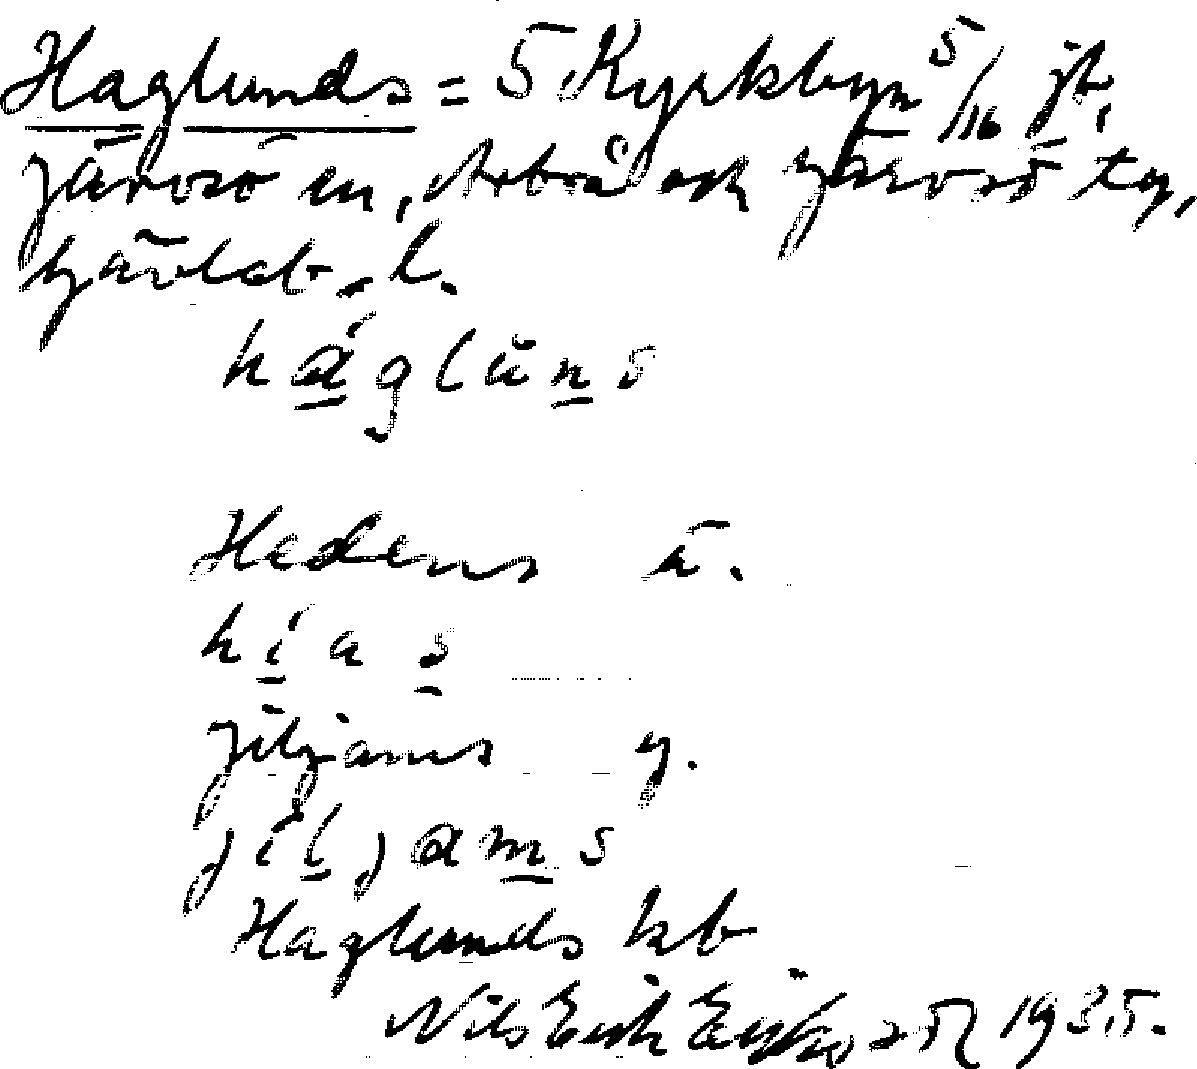 Haglunds = 5 Kyrkbyn 5/16 jb,
Järvsö sn, Arbrå och Järvsö tg,
Gävleb. l.
háglu̇ns
Hedens ä.
hias
Jiljams y.
jiljams
Haglunds kb
Nils Erik Eriksson 1935.